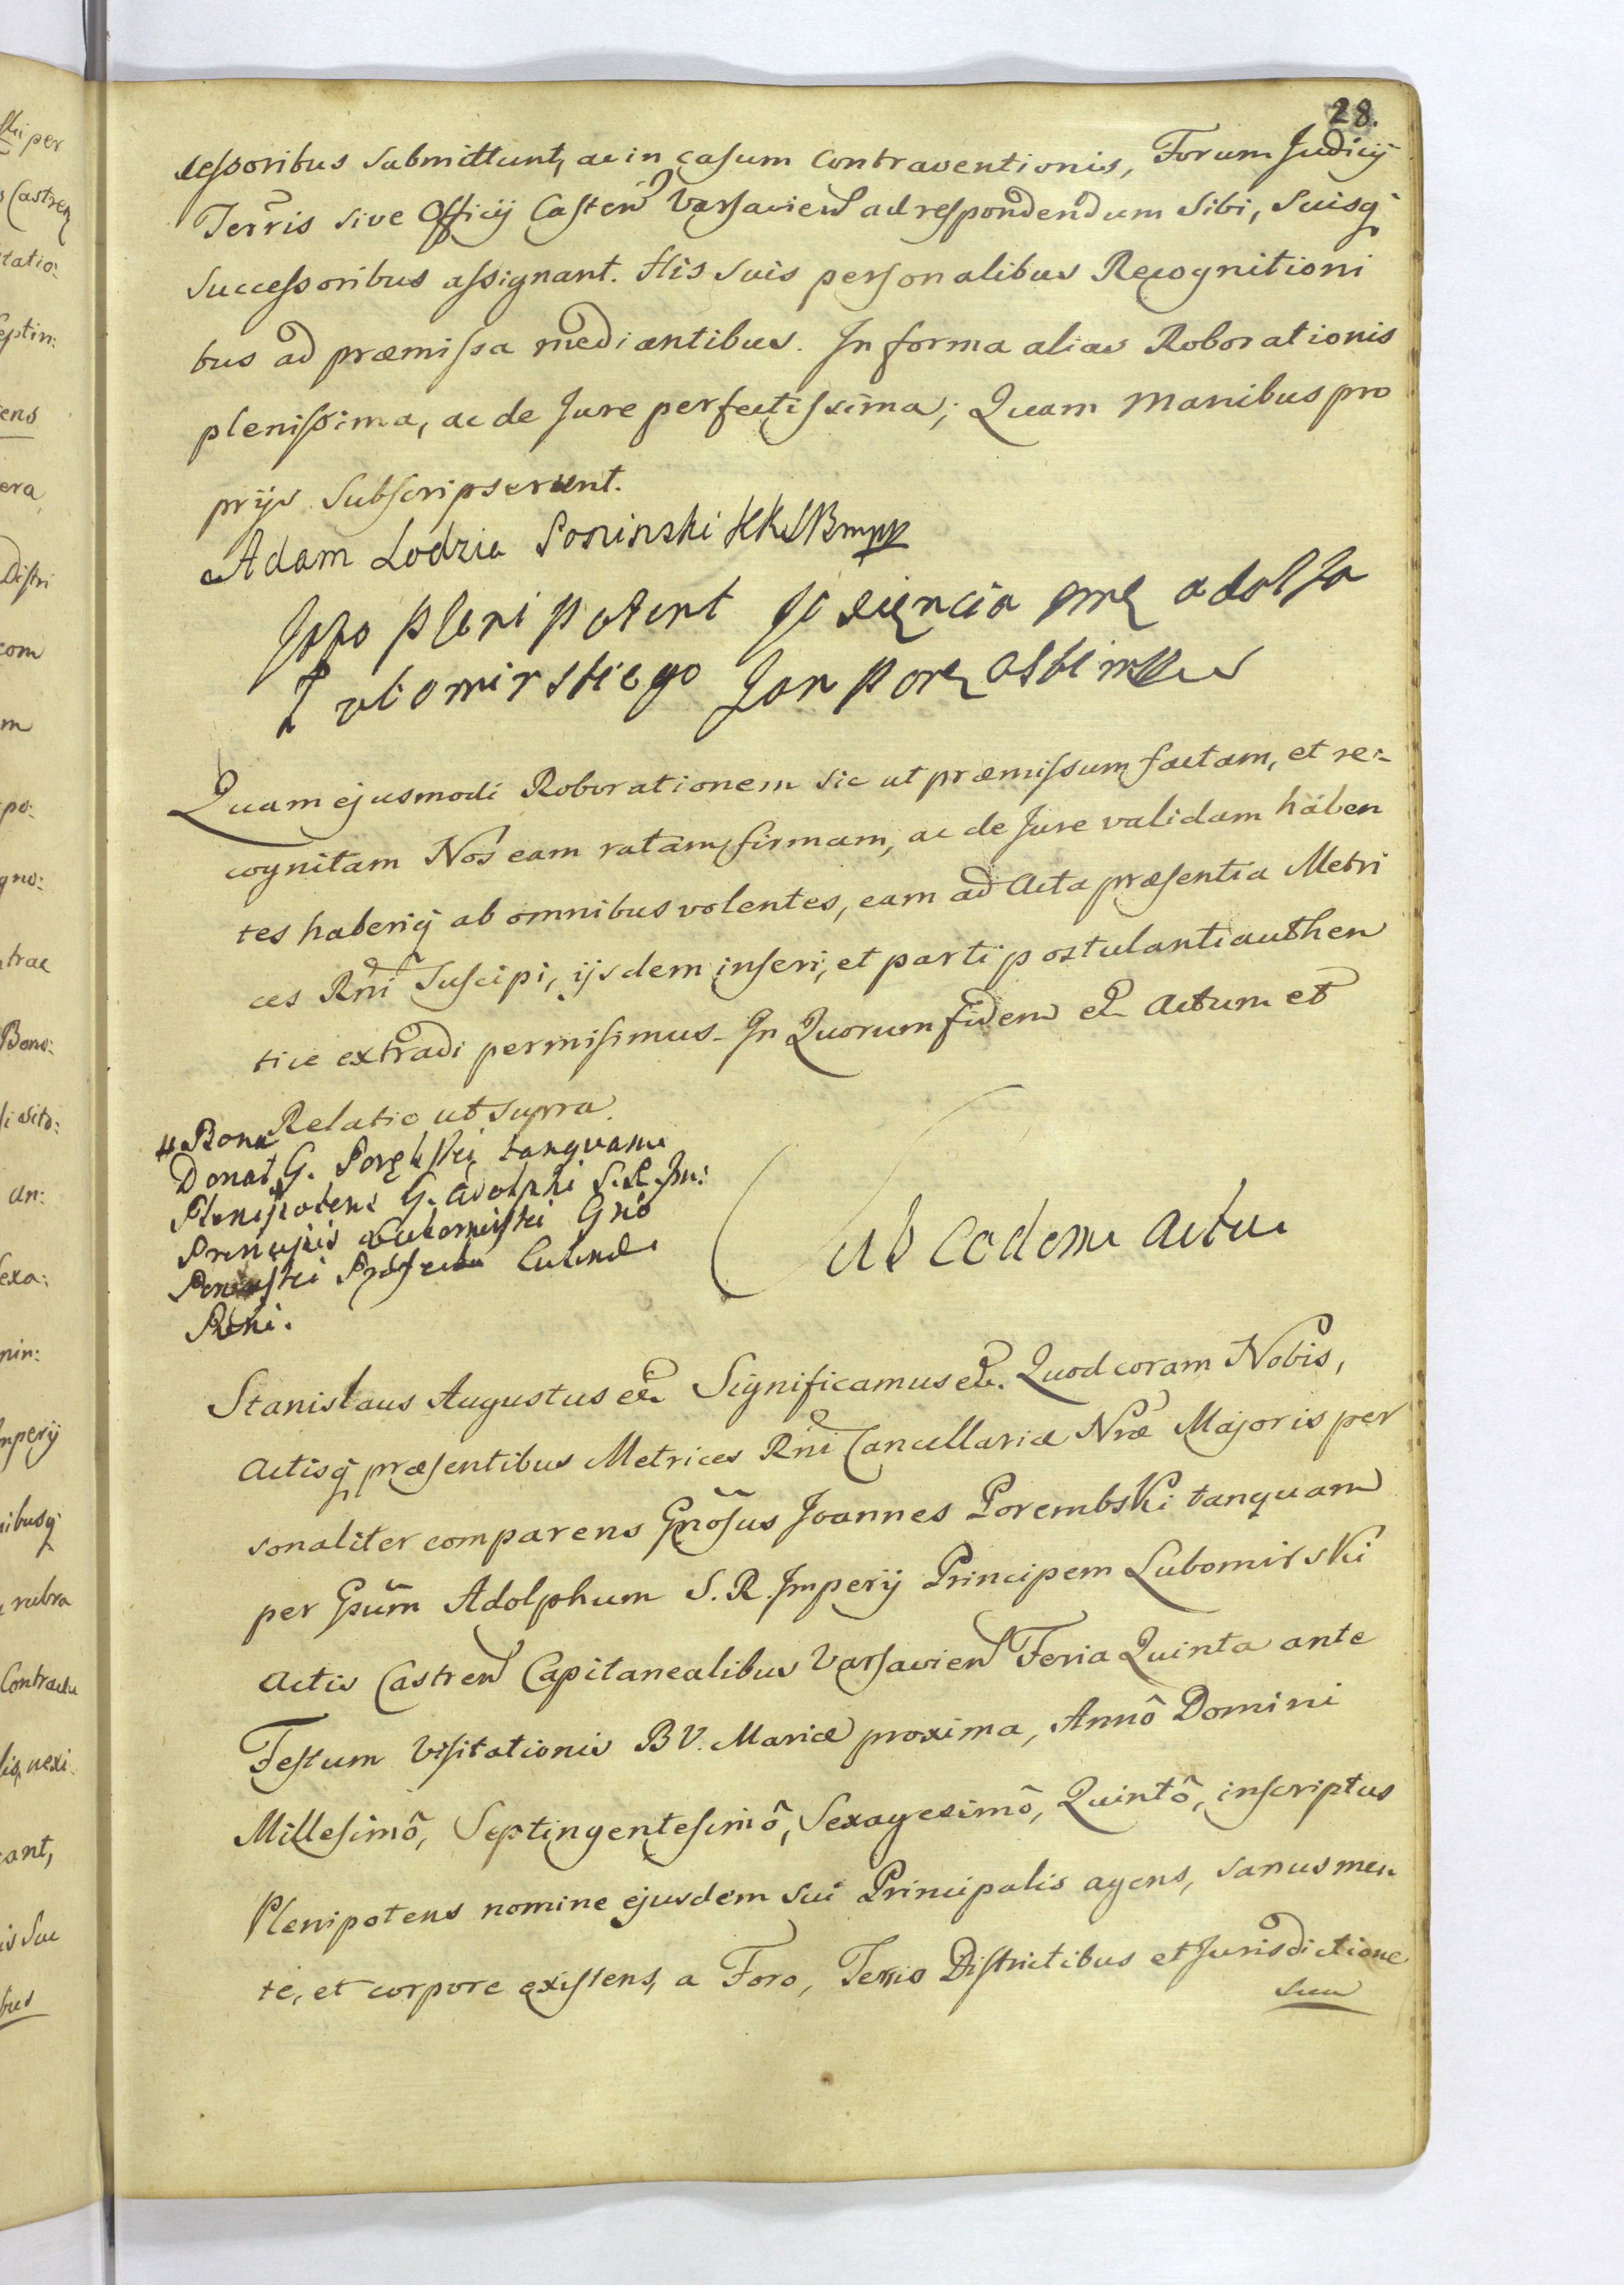 28.
cessoribus submittunt, ac in casum Contraventionis, Forum Judicij
Terris sive Officij Castren Varsavien ad respondendum Sibi, Suisq
Successoribus assignant. His suis personalibus Recognitioni
bus ad præmissa mediantibus. In forma alias Roborationis
plenissima, ac de Jure perfectissima; Quam Manibus pro
prijs Subscripserunt.
Adam Lodzia Poninski KKJB mpp
Jako plenipotent Xięncia
Lubomirskiego Jan Porembski mp
Quam ejusmodi Roborationem sic ut præmissum factam, et re-
cognitam Nos eam ratam, firmam, ac de Jure validam haben
tes haberiq ab omnibus volentes, eam ad Acta præsentia Metri
ces Rni Suscipi, ijsdem inseri, et parti postulanti authen
tice extradi permisimus. In Quorum fidem et Actum et
Relatio ut supra.
Donat G. Porębski tanquam
Plenipotens G. Adolphi S. R. Im:
Principis Lubomirski Gno
Poninski Culinæ
Rni.
Sub eodem actu
Stanislaus Augustus et Significamus et. Quod coram Nobis,
Actisq præsentibus Metrices Rni Cancellariæ Nræ Majoris per
sonaliter comparens Gnosus Joannes Porembski tanquam
per Gsum Adolphum S. R. Imperij Principem Lubomirski
Actis Castren Capitanealibus Varsavien Feria Quinta ante
Festum Visitationis B V. Mariæ proxima, Annô Domini
Millesimô, Septingentesimô, Sexagesimô, Quintô, inscriptus
Plenipotens nomine ejusdem sui Principalis agens, sanus men
te, et corpore existens, a Foro, Terris Districtibus et Jurisdictione